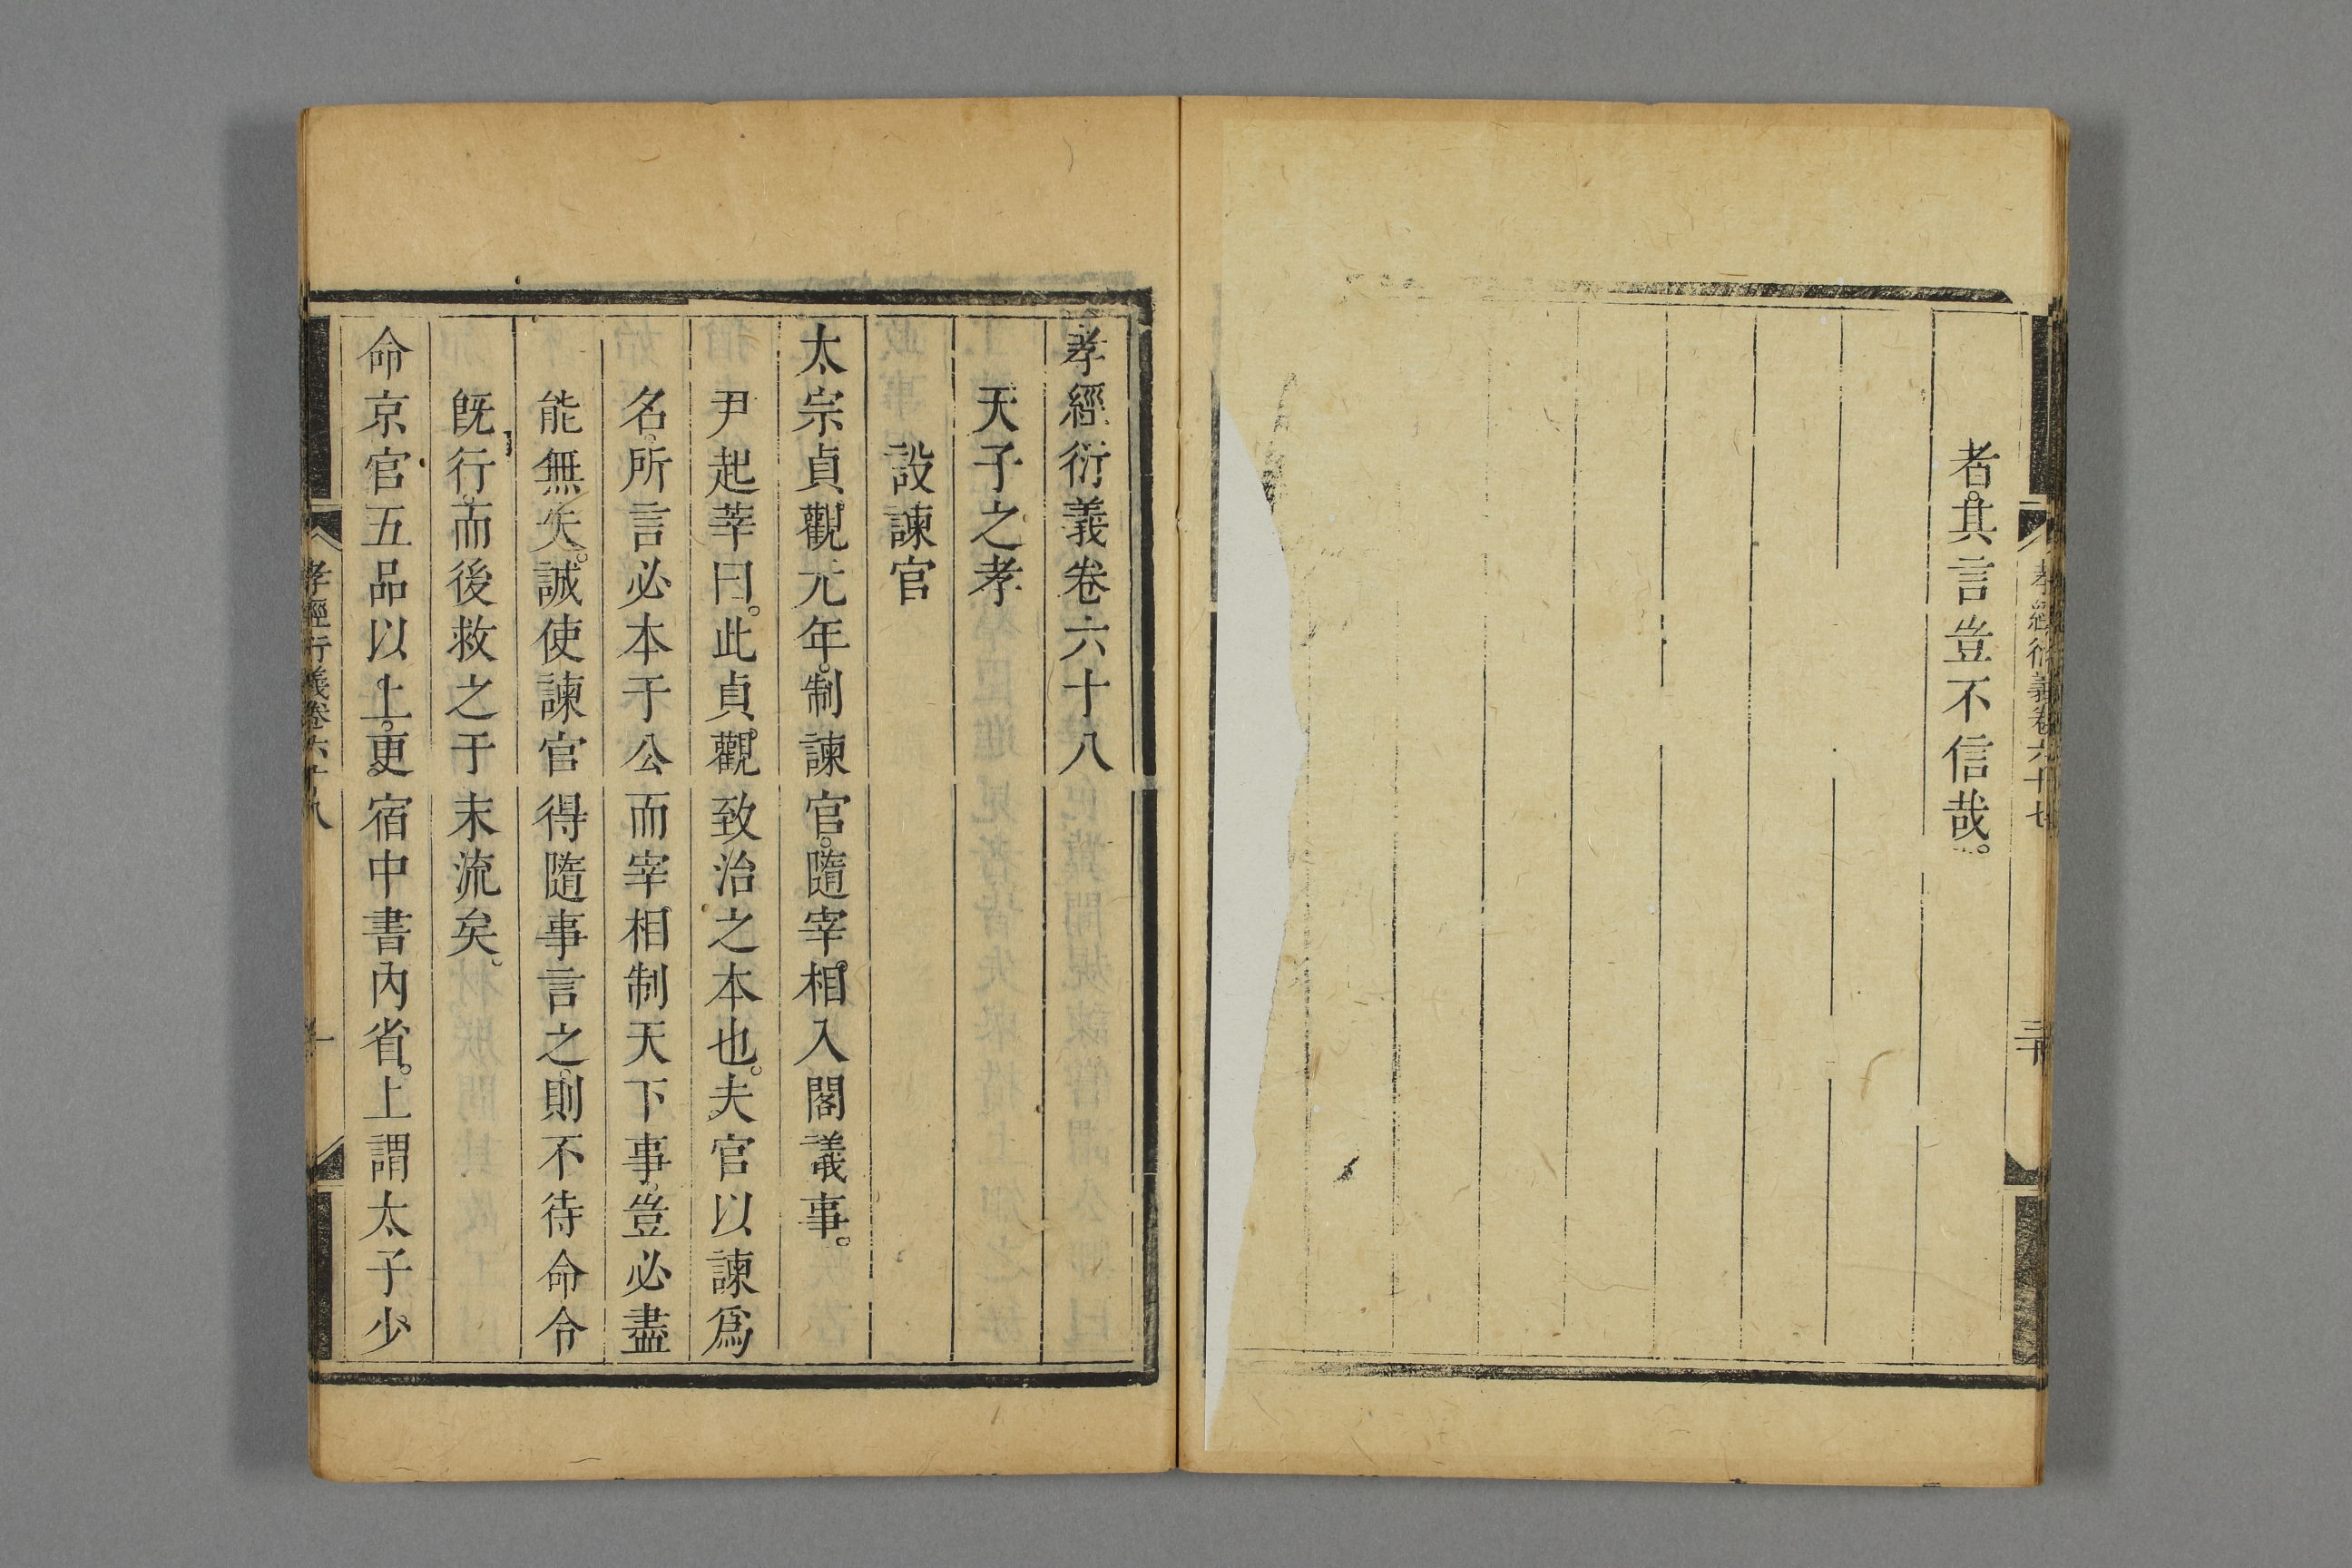 者其言豈不信哉。
孝經衍義卷六十七
孝經衍義卷六十八
天子之孝
設諫官
太宗貞觀元年。制諫官。隨宰相入閣議事。
尹起莘曰。此貞觀致治之本也。夫官以諫爲
名。所言必本于公。而宰相制天下事。豈必盡
能無失。誠使諫官得隨事言之。則不待命令
旣行。而後救之于末流矣。
命京官五品以上。更宿中書內省。上謂太子少
孝經衍義卷六十八
一